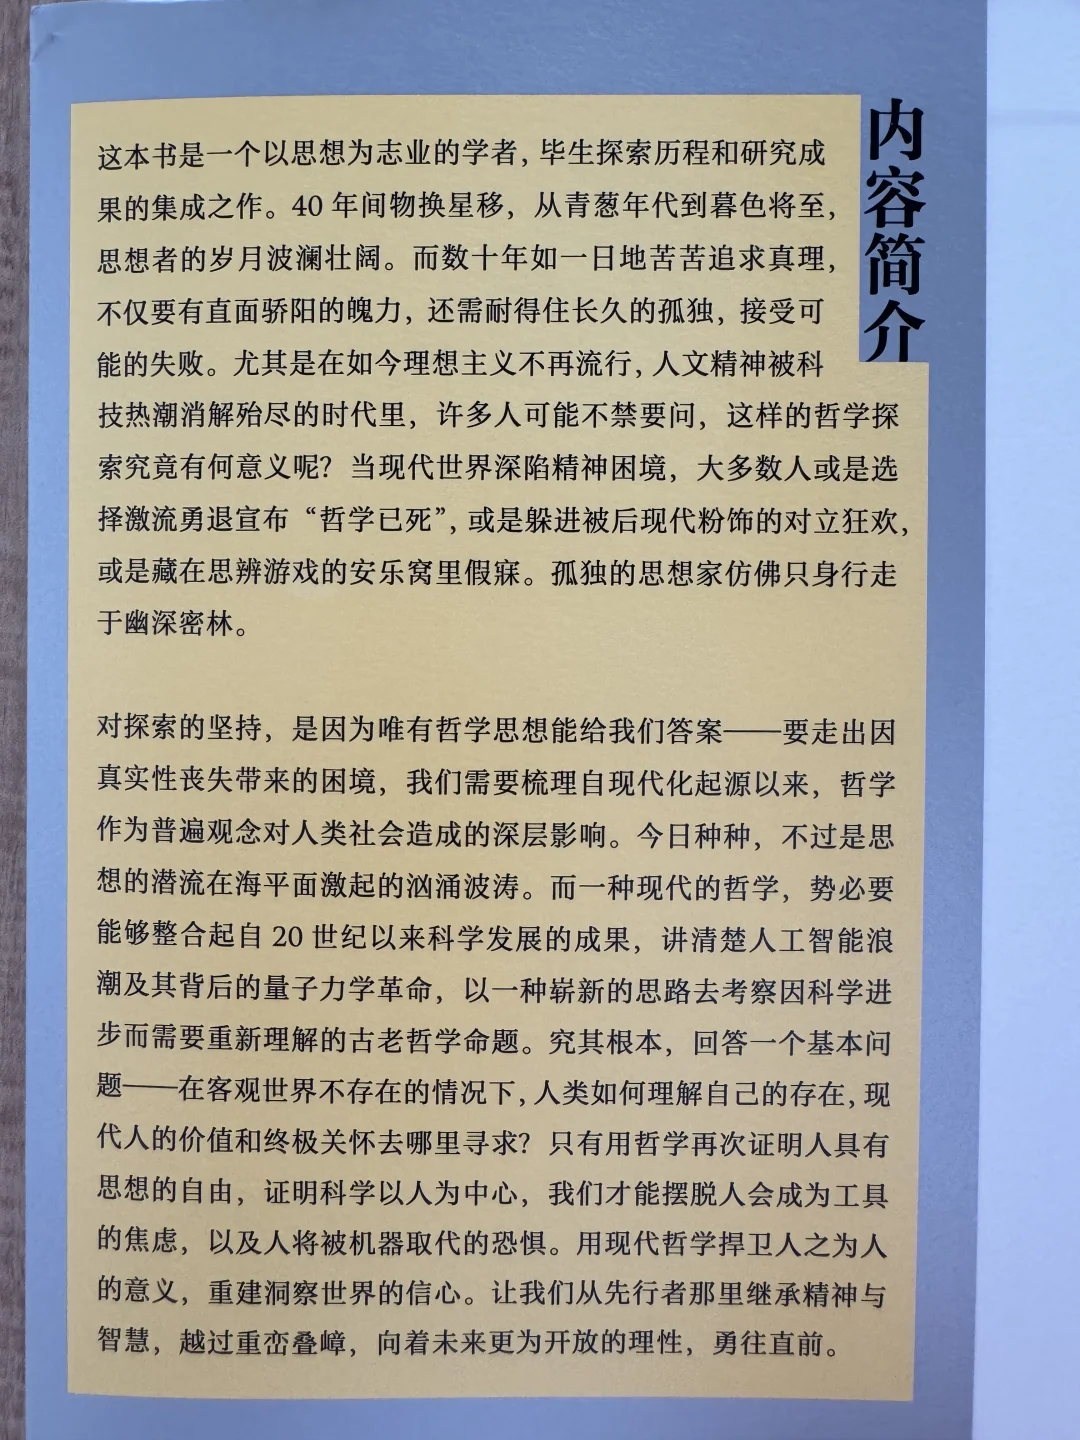 内容简介
这本书是一个以思想为志业的学者，毕生探索历程和研究成
果的集成之作。40 年间物换星移，从青葱年代到暮色将至，
思想者的岁月波澜壮阔。而数十年如一日地苦苦追求真理，
不仅要有直面骄阳的魄力，还需耐得住长久的孤独，接受可
能的失败。尤其是在如今理想主义不再流行，人文精神被科
技热潮消解殆尽的时代里，许多人可能不禁要问，这样的哲学探
索究竟有何意义呢？当现代世界深陷精神困境，大多数人或是选
择激流勇退宣布“哲学已死”，或是躲进被后现代粉饰的对立狂欢，
或是藏在思辨游戏的安乐窝里假寐。孤独的思想家仿佛只身行走
于幽深密林。
对探索的坚持，是因为唯有哲学思想能给我们答案——要走出因
真实性丧失带来的困境，我们需要梳理自现代化起源以来，哲学
作为普遍观念对人类社会造成的深层影响。今日种种，不过是思
想的潜流在海平面激起的汹涌波涛。而一种现代的哲学，势必要
能够整合起自 20 世纪以来科学发展的成果，讲清楚人工智能浪
潮及其背后的量子力学革命，以一种崭新的思路去考察因科学进
步而需要重新理解的古老哲学命题。究其根本，回答一个基本问
题——在客观世界不存在的情况下，人类如何理解自己的存在，现
代人的价值和终极关怀去哪里寻求？只有用哲学再次证明人具有
思想的自由，证明科学以人为中心，我们才能摆脱人会成为工具
的焦虑，以及人将被机器取代的恐惧。用现代哲学捍卫人之为人
的意义，重建洞察世界的信心。让我们从先行者那里继承精神与
智慧，越过重峦叠嶂，向着未来更为开放的理性，勇往直前。